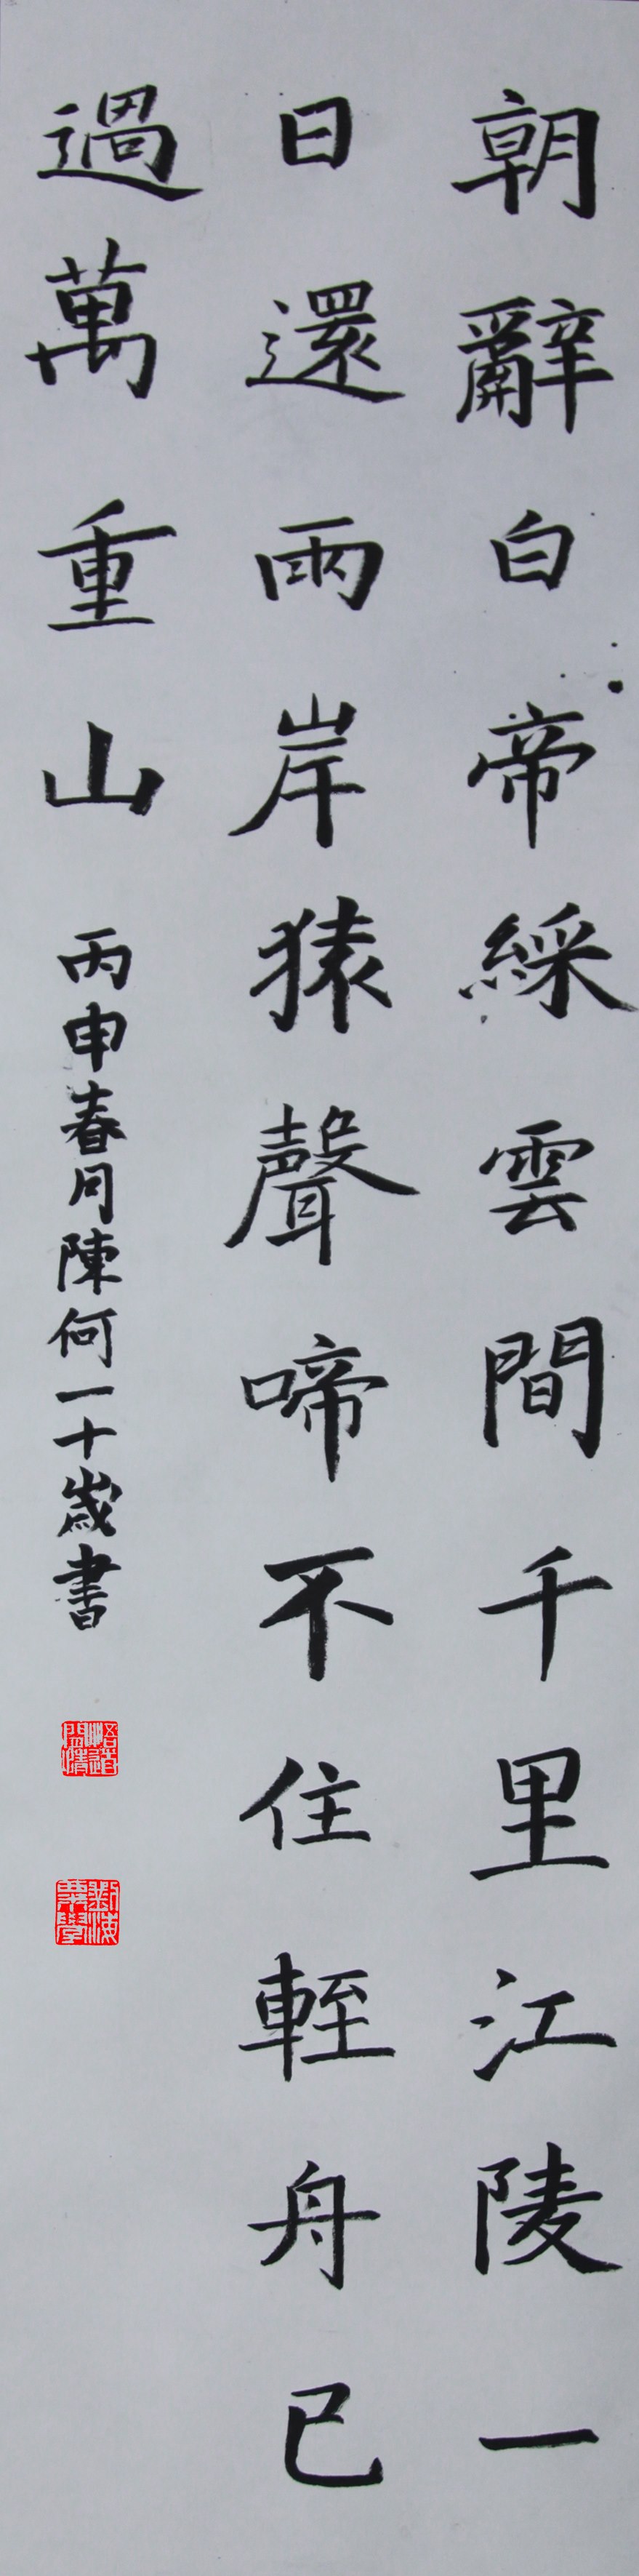 朝辭白帝綵雲間千里江陵一
日還兩岸猿聲啼不住輊舟已
過萬重山
丙申春月陳何一十歲書